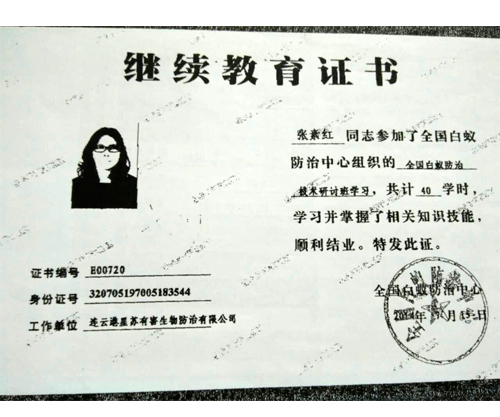 继续教育证书
张素红 同志参加了全国白蚁
防治中心组织的 全国白蚁防治
技术研讨班学习，共计 40 学时，
学习并掌握了相关知识技能，
顺利结业。特发此证。
证书编号 E00720
身份证号 320705197005183544
工作单位 连云港星苏有害生物防治有限公司
全国白蚁防治中心
年 月 日